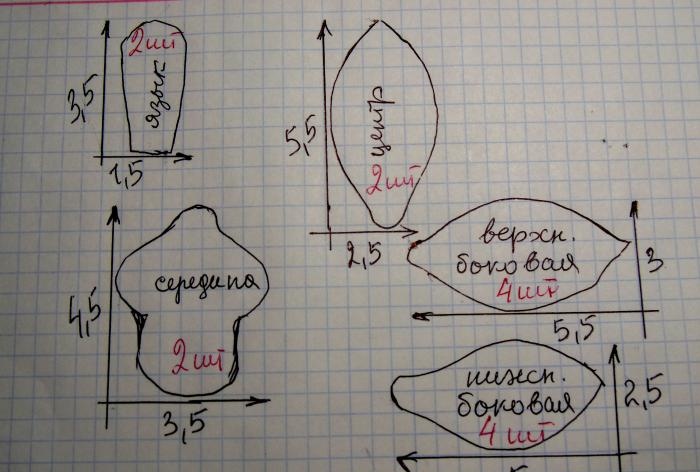 2 шт
язык
3,5
1,5
центр
2 шт
5,5
2,5
середина
2 шт
4,5
3,5
верхн.
боковая
4 шт
3
5,5
нижн.
боковая
4 шт
2,5